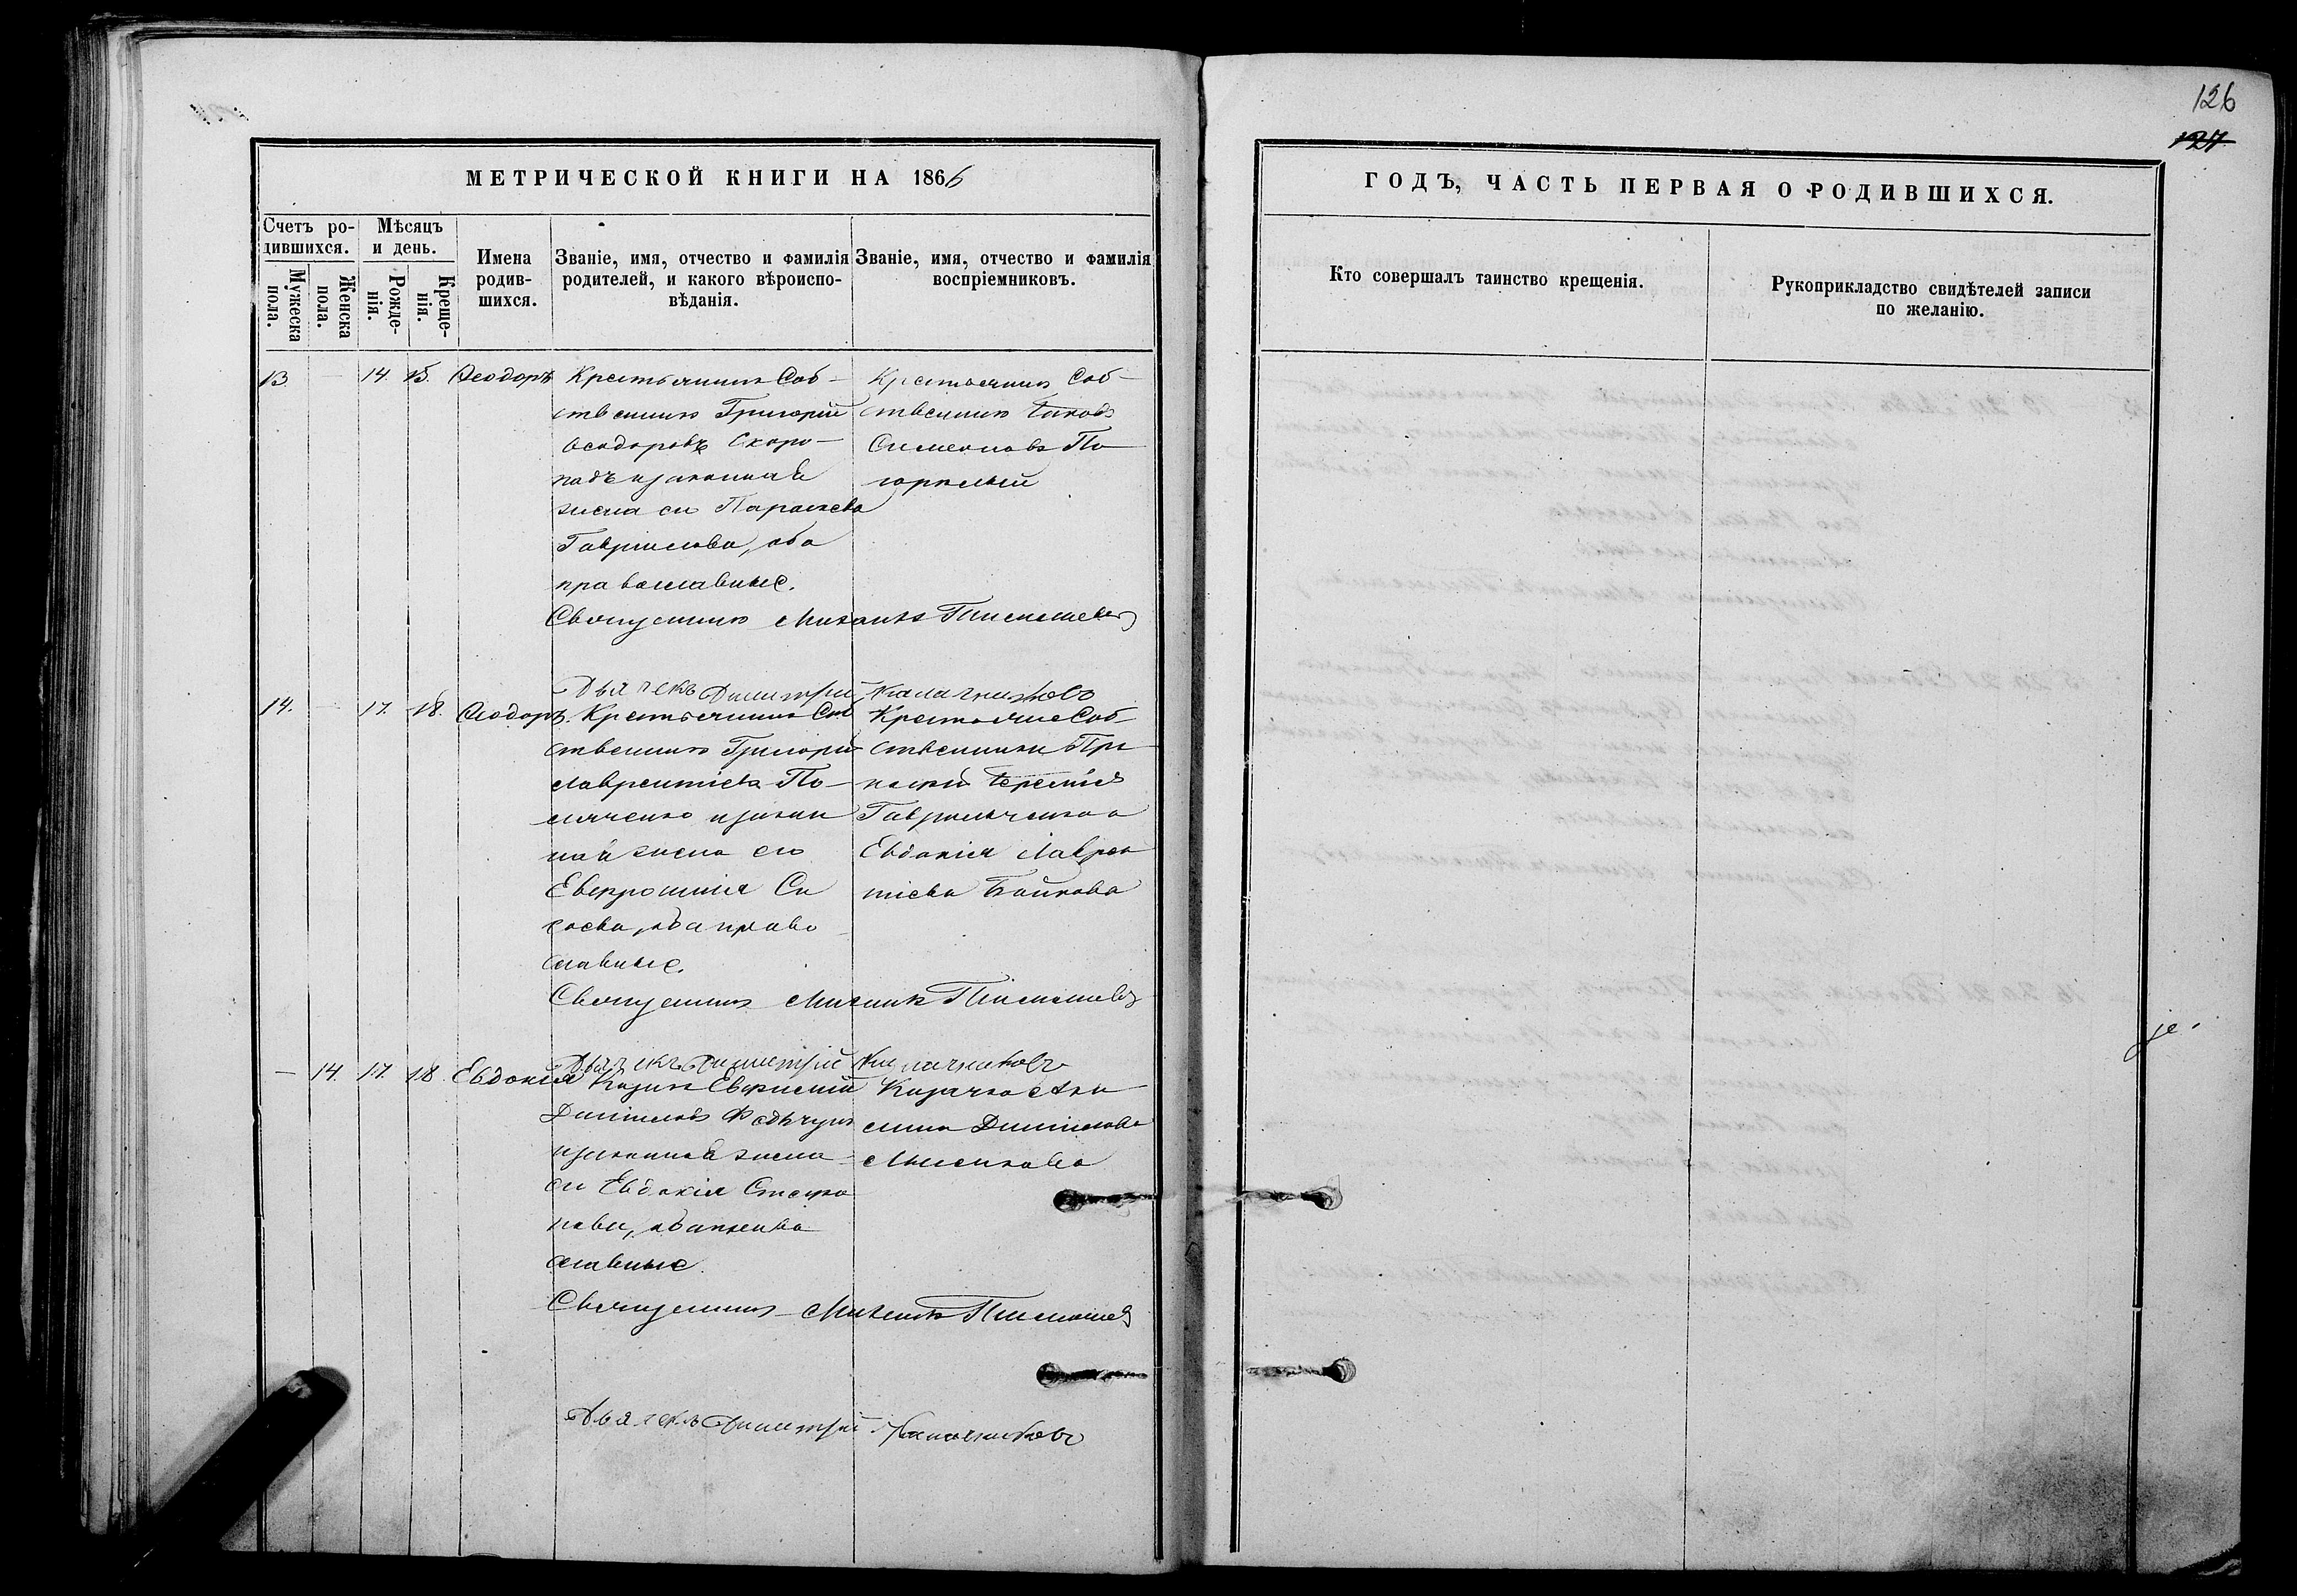 126
127
МЕТРИЧЕСКОЙ КНИГИ НА 1866
ГОДЪ, ЧАСТЬ ПЕРВАЯ О РОДИВШИХСЯ.
Счетъ ро-
дившихся.
Мужеска
пола.
Женска
пола.
Мѣсяцъ
и день.
Рожде-
нія.
Креще-
нія.
Имена
родив-
шихся.
Званіе, имя, отчество и фамилія
родителей, и какого вѣроиспо-
вѣданія.
Званіе, имя, отчество и фамилія
воспріемниковъ.
Кто совершалъ таинство крещенія.
Рукоприкладство свидѣтелей записи
по желанію.
13. — 14. 15. Ѳеодоръ
Крестьянинъ Соб-
ственникъ Григорій
Ѳеодоровъ Скоро-
падъ и законная
жена его Параскева
Гавріилова, оба
православные.
Крестьянинъ Соб-
ственникъ Іаковъ
Симеоновъ По-
горѣлый
Священникъ Михаилъ
Дьячекъ Димитрій Калачниковъ
14. — 17. 18. Ѳеодоръ.
Крестьянинъ Соб
ственникъ Григорій
Лаврентіевъ По-
ляченко и закон
ная жена его
Евфросинія Сы
соева, оба право
славные.
Крестьяне Соб-
ственники
Гаврильченко и
Евдокія Лаврен
тіева Байкова
Священникъ Михаилъ
Дьячекъ Димитрій Калачниковъ
— 14. 17. 18. Евдокія
Казакъ Евфимій
Даниловъ
и законная жена
его Евдокія Стефа
нова, оба право
славные.
Казачка Аки
лина Данилова
Священникъ Михаилъ
Дьячекъ Димитрій Калачниковъ